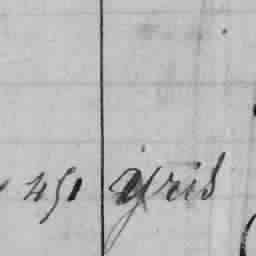 451 gris